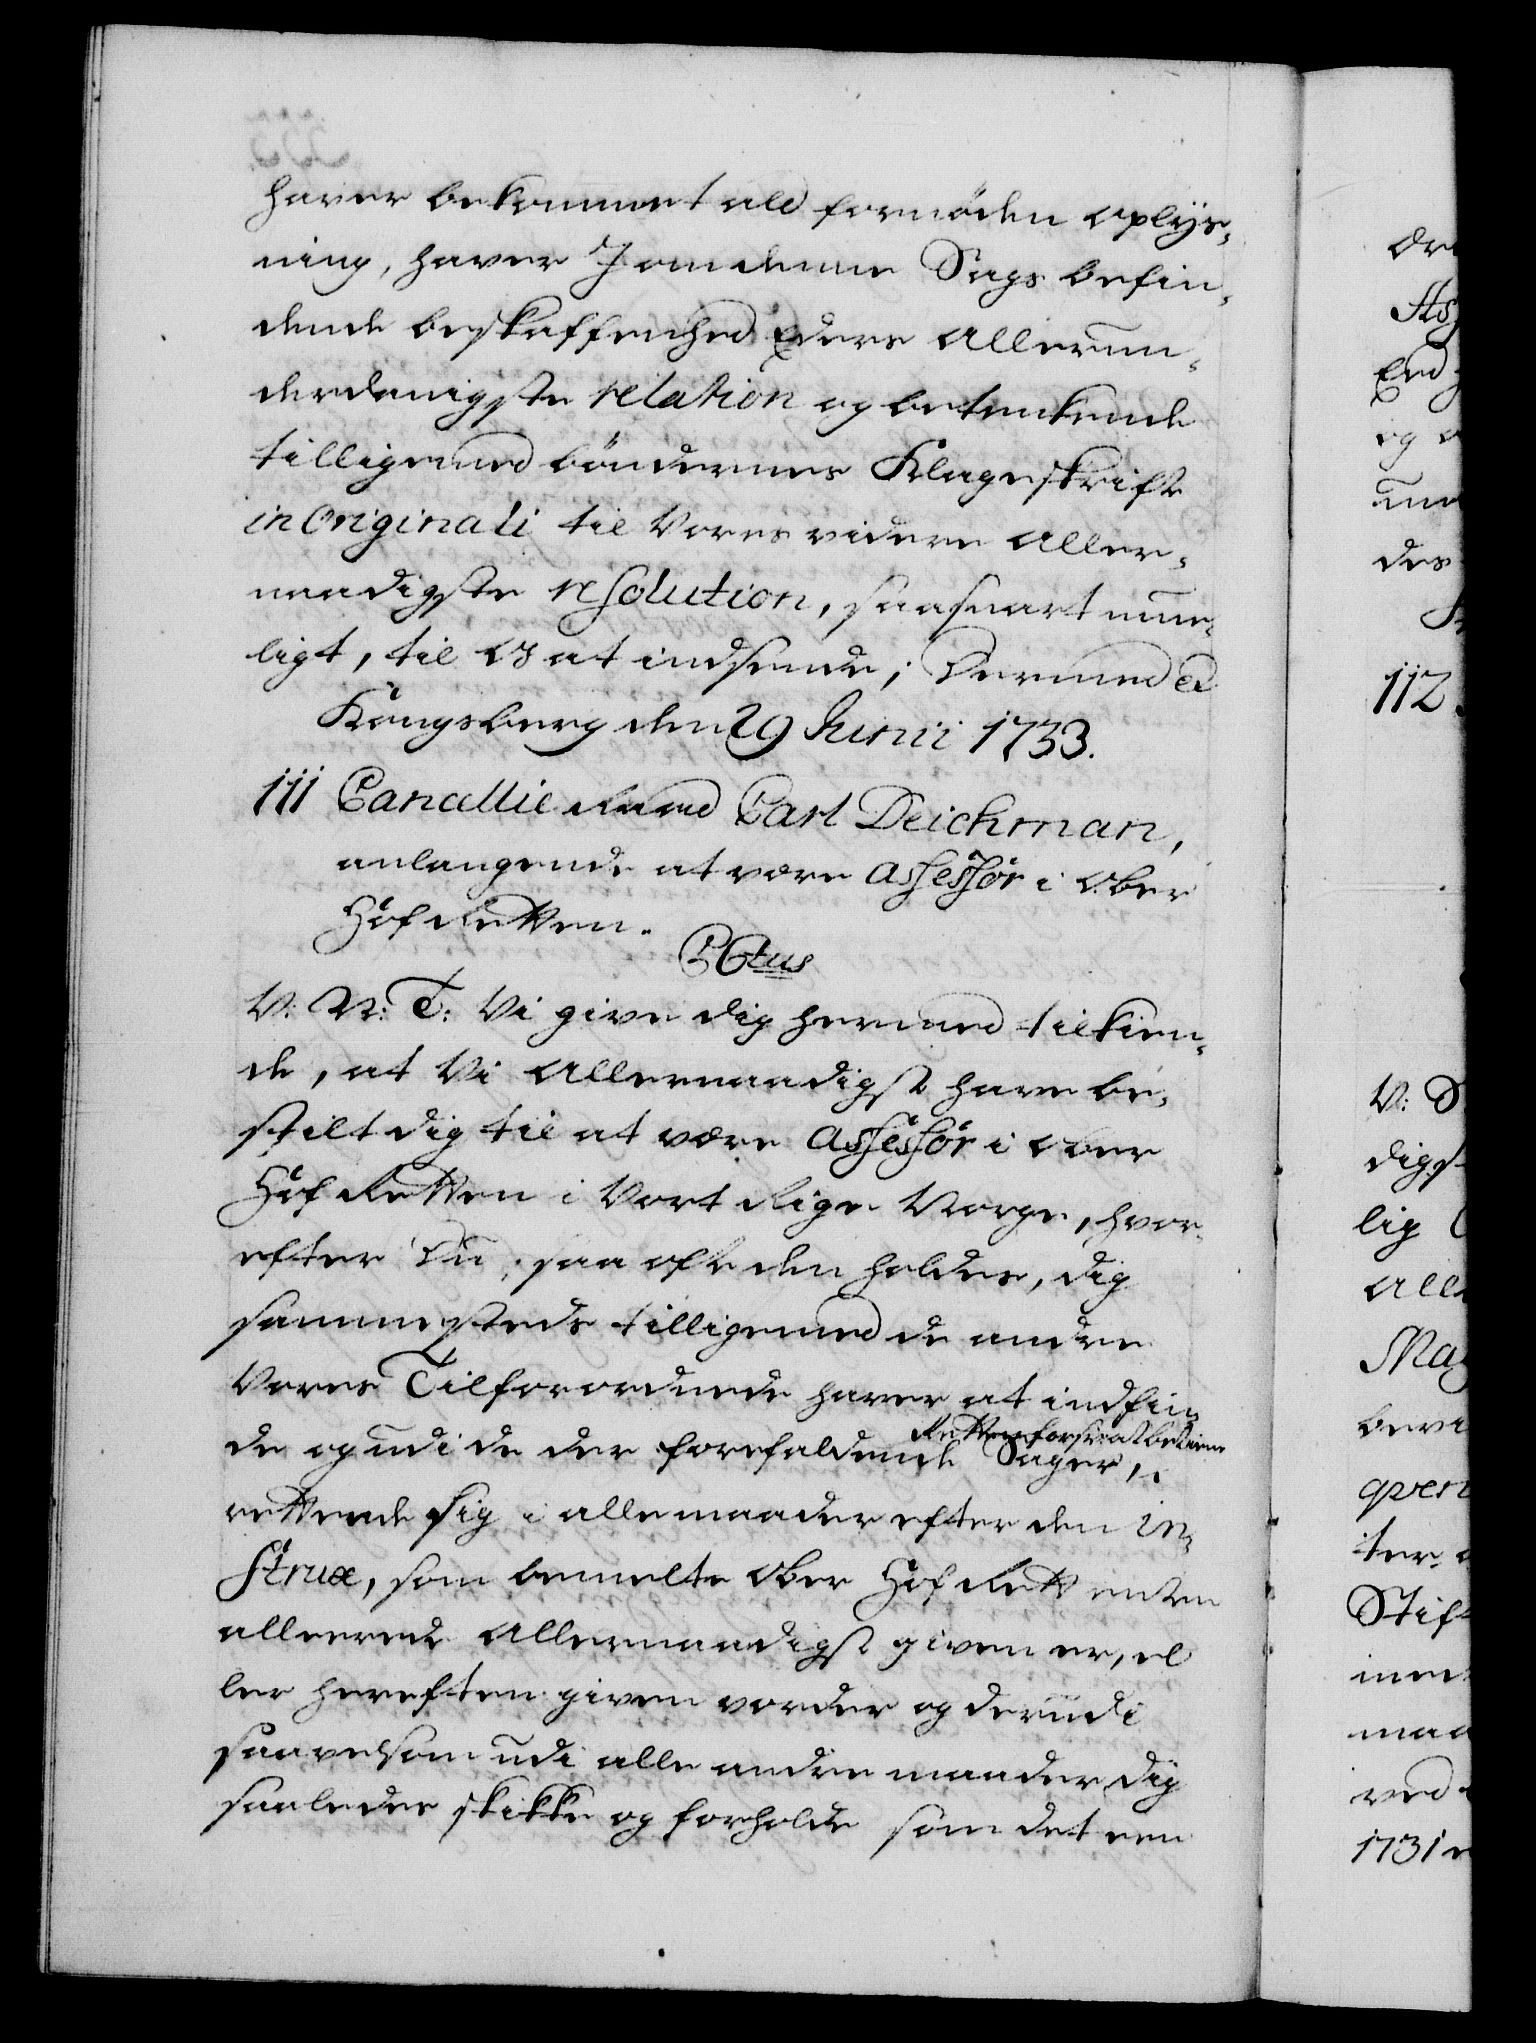 haver bekommet ald fornöden oplys-
ning, haver I om denne Sags befin-
dende beskaffenhed Eders Allerun-
derdanigste relation og betenkende
tilligemed böndernes Klageskrift
in Originali til Vores videre Aller-
naadigste resolution, saasnart mue-
ligt, til Os at indsende; Dermed &
Kongsberg den 29 Junii 1733.
111 Cancellie Raad Carl Deichman,
anlangende at være Assessor i Ober
Hof Retten.
C 6tus
V: N: T: Vi give dig hermed tilkien-
de, at Vi Allernaadigst have be-
stilt dig til at være Assessor i Ober
Hof Retten i Vort Rige Norge, hvor-
efter Du, saa ofte den holdes, dig
sammesteds tilligemed de andre
Vores Tilforordnede haver at indfin-
Retten forsvarl betiene
de og udi de der forefaldende Sager,
rettende sig i alle maader efter den in-
strux, som bemelte Ober Hof Rett enten
allerede Allernaadigst given er, el
ler herefter given vorder og derudi
saavelsom udi alle andre maader dig
saaledes skikke og forholde som det een
Asse
Eed
og
des
112
V: S
digst
lig
Alle
May
bevi
qven
ter
Stift
maa
ved
1731